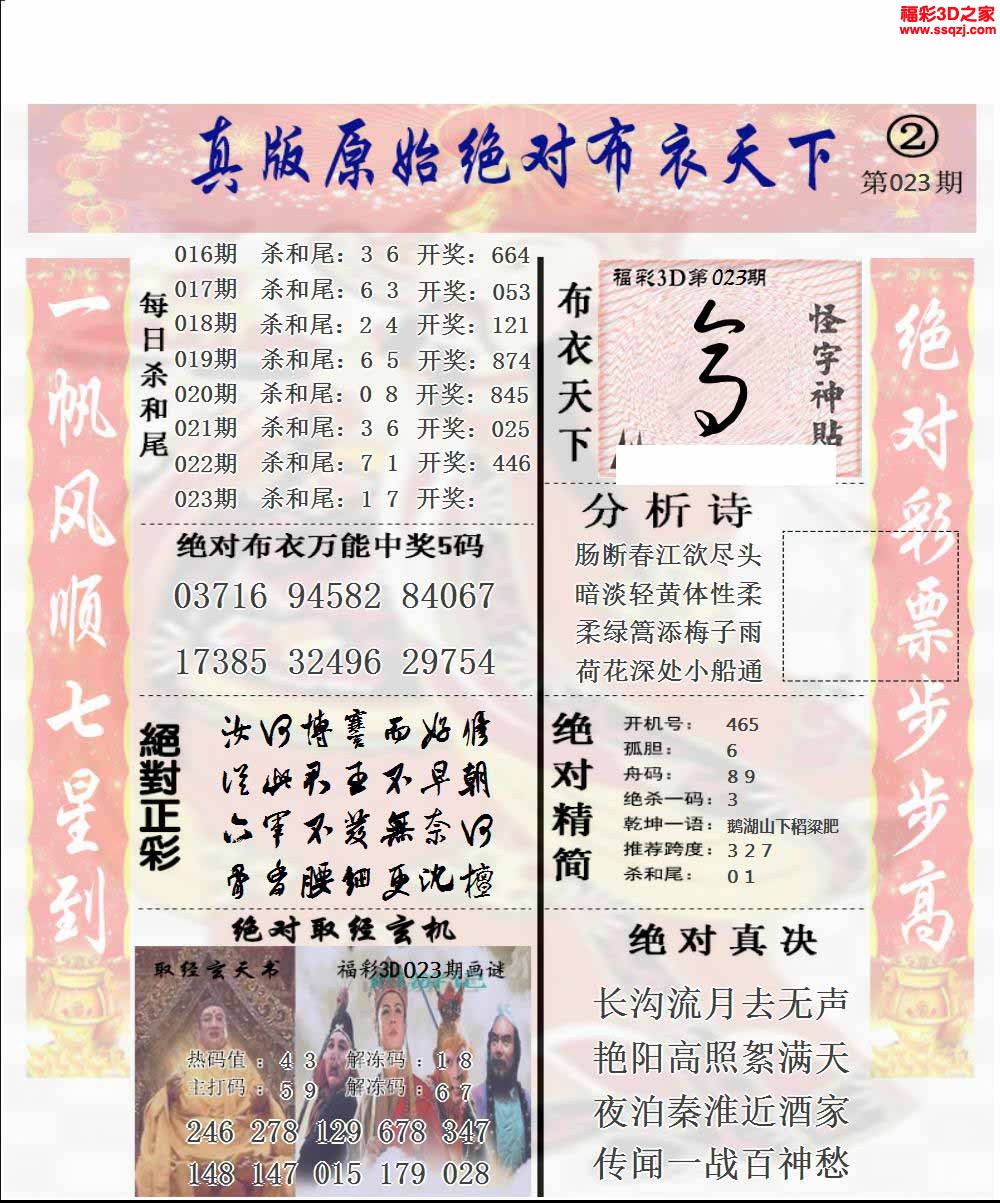 福彩3D之家
www.ssqzj.com
真版原始绝对布衣天下
②
第023期
一帆风顺七星到
每日杀和尾
016期 杀和尾：3 6 开奖：664
017期 杀和尾：6 3 开奖：053
018期 杀和尾：2 4 开奖：121
019期 杀和尾：6 5 开奖：874
020期 杀和尾：0 8 开奖：845
021期 杀和尾：3 6 开奖：025
022期 杀和尾：7 1 开奖：446
023期 杀和尾：1 7 开奖：
绝对布衣万能中奖5码
03716 94582 84067
17385 32496 29754
絕對正彩
汝何博謇而好修
从此君王不早朝
六軍不發無奈何
骨香腰细更沈檀
绝对取经玄机
取经玄天书
福彩3D023期画谜
热码值：4 3 解冻码：1 8
主打码：5 9 解冻码：6 7
246 278 129 678 347
148 147 015 179 028
布衣天下
福彩3D第023期
怪字神貼
分析诗
肠断春江欲尽头
暗淡轻黄体性柔
柔绿篙添梅子雨
荷花深处小船通
绝对精简
开机号： 465
孤胆： 6
舟码： 8 9
绝杀一码：3
乾坤一语：鹅湖山下稻粱肥
推荐跨度：3 2 7
杀和尾： 0 1
绝对真决
长沟流月去无声
艳阳高照絮满天
夜泊秦淮近酒家
传闻一战百神愁
绝对彩票步步高